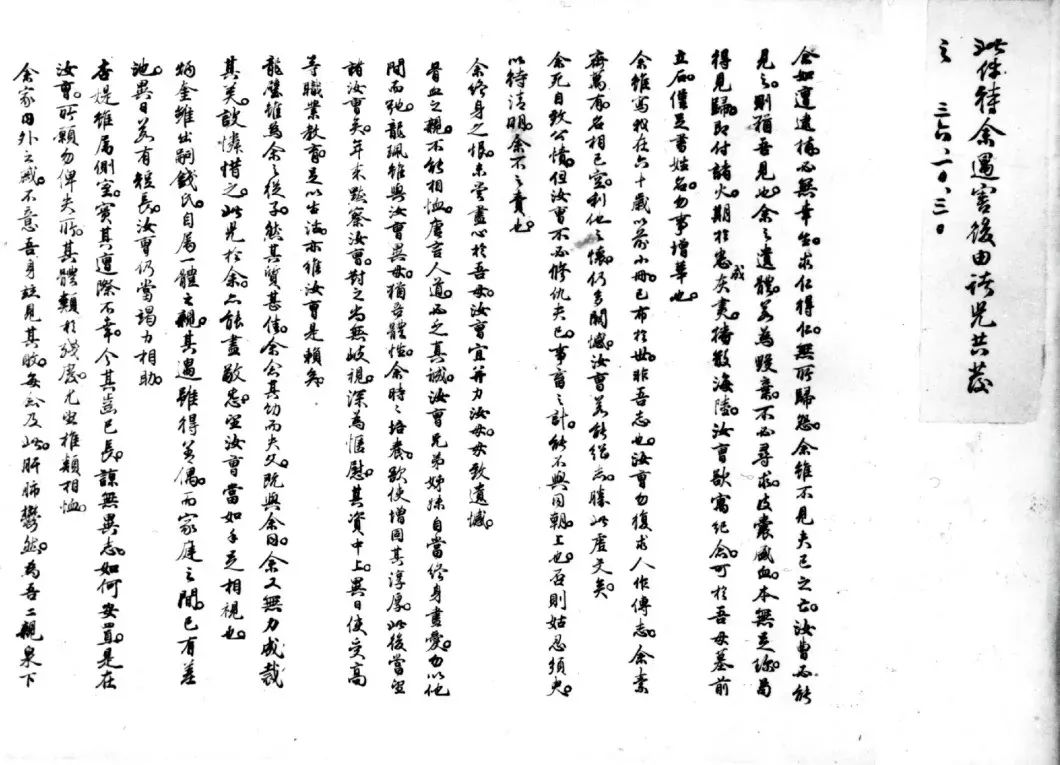 此件待余遇害後由諸兒共發
之 三六、二〇、三〇
余如遭逮捕必無幸生求仁得仁無所歸怨余雖不見夫己之亡汝曹必能
見之則猶吾見也余之遺體若為毀棄不必尋求皮囊盛血本無足珍苟
得見歸即付諸火期於忽灰夷或播散海陸汝曹欲寓紀念可於吾母墓前
立石僅足書姓名勿事增華也
余雖寫我在六十歲以前小冊已布於世非吾志也汝曹勿復求人作傳志余素
齊萬有名相已空利他之懷仍多闕憾汝曹若能繼志勝此虛文矣
余死自致公憤但汝曹不必修仇夫己事育之計能不與同朝上也否則姑忍須臾
以待清明余不之責也
余終身之恨未嘗盡心於吾母汝曹宜并力汝母毋致遺憾
骨血之親不能相恤唐言人道而乏真誠汝曹兄弟姊妹自當終身盡愛勿以他
間而弛龍珮雖與汝曹異母猶吾體恤余時時培養欲使增固其淳厚此後當望
諸汝曹矣年來默察汝曹對之尚無歧視深為愜慰其資中上異日使受高
等職業教育足以生活亦惟汝曹是賴矣
龍驤雖為余之從子然其質甚佳余公其幼而失父既與余同余又無力成哉
其美故憐惜之此兒於余亦能盡敬忠望汝曹當如手足相視也
炳奎雖出嗣錢氏自屬一體之親其遇雖得菩偶而家庭之間已有差
池異日若有短長汝曹仍當竭力相助
杏媞雖屬側室實其遭際不幸今其齒已長諒無異志如何安置是在
汝曹所願勿俾失所其體類於殘廢尤望推類相恤
余家內外之戚不意吾身竝見其敗每念及此肝肺鬱然為吾二親泉下